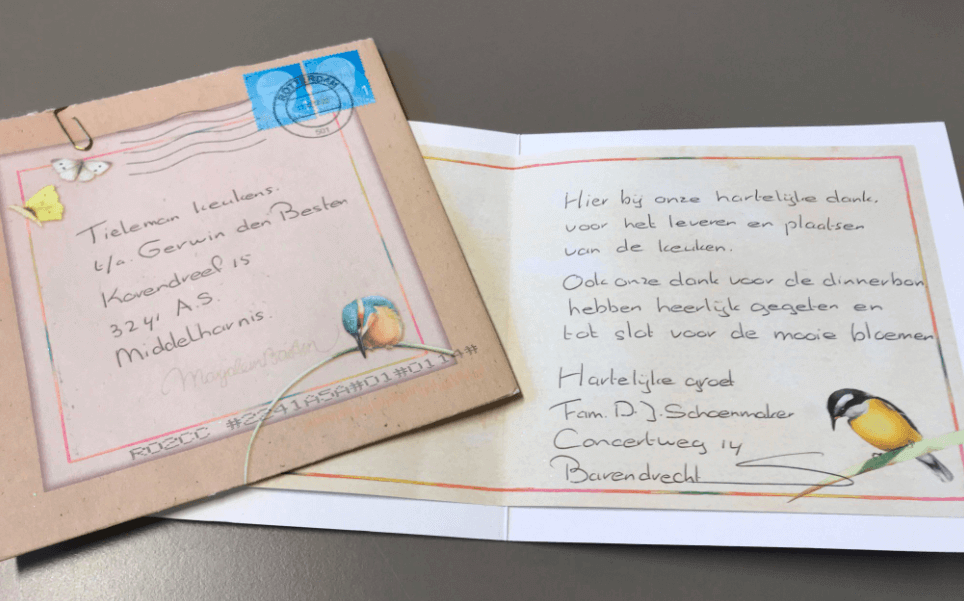 ROTTERDAM
1
Tieleman keukens.
t/a. Gerwin den Besten
Korendreef 15
3241 A.S.
Middelharnis.
Marjolein Bastin
Hier bij onze hartelijke dank,
voor het leveren en plaatsen
van de keuken.
Ook onze dank voor de dinnerbon
hebben heerlijk gegeten en
tot slot voor de mooie bloemen
Hartelijke groet
Fam. D.J. Schoenmaker
Concertweg 14
Barendrecht